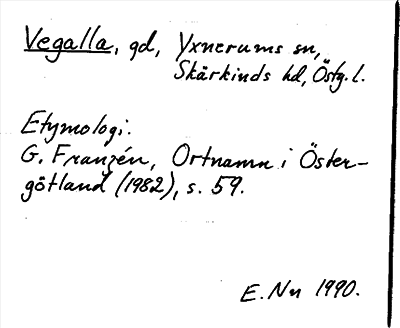 Vegalla, gd, Yxnerums sn,
Skärkinds hd, Östg. l.
Etymologi.
G. Franzén, Ortnamn i Öster-
götland (1982), s. 59.
E. Nn 1990.